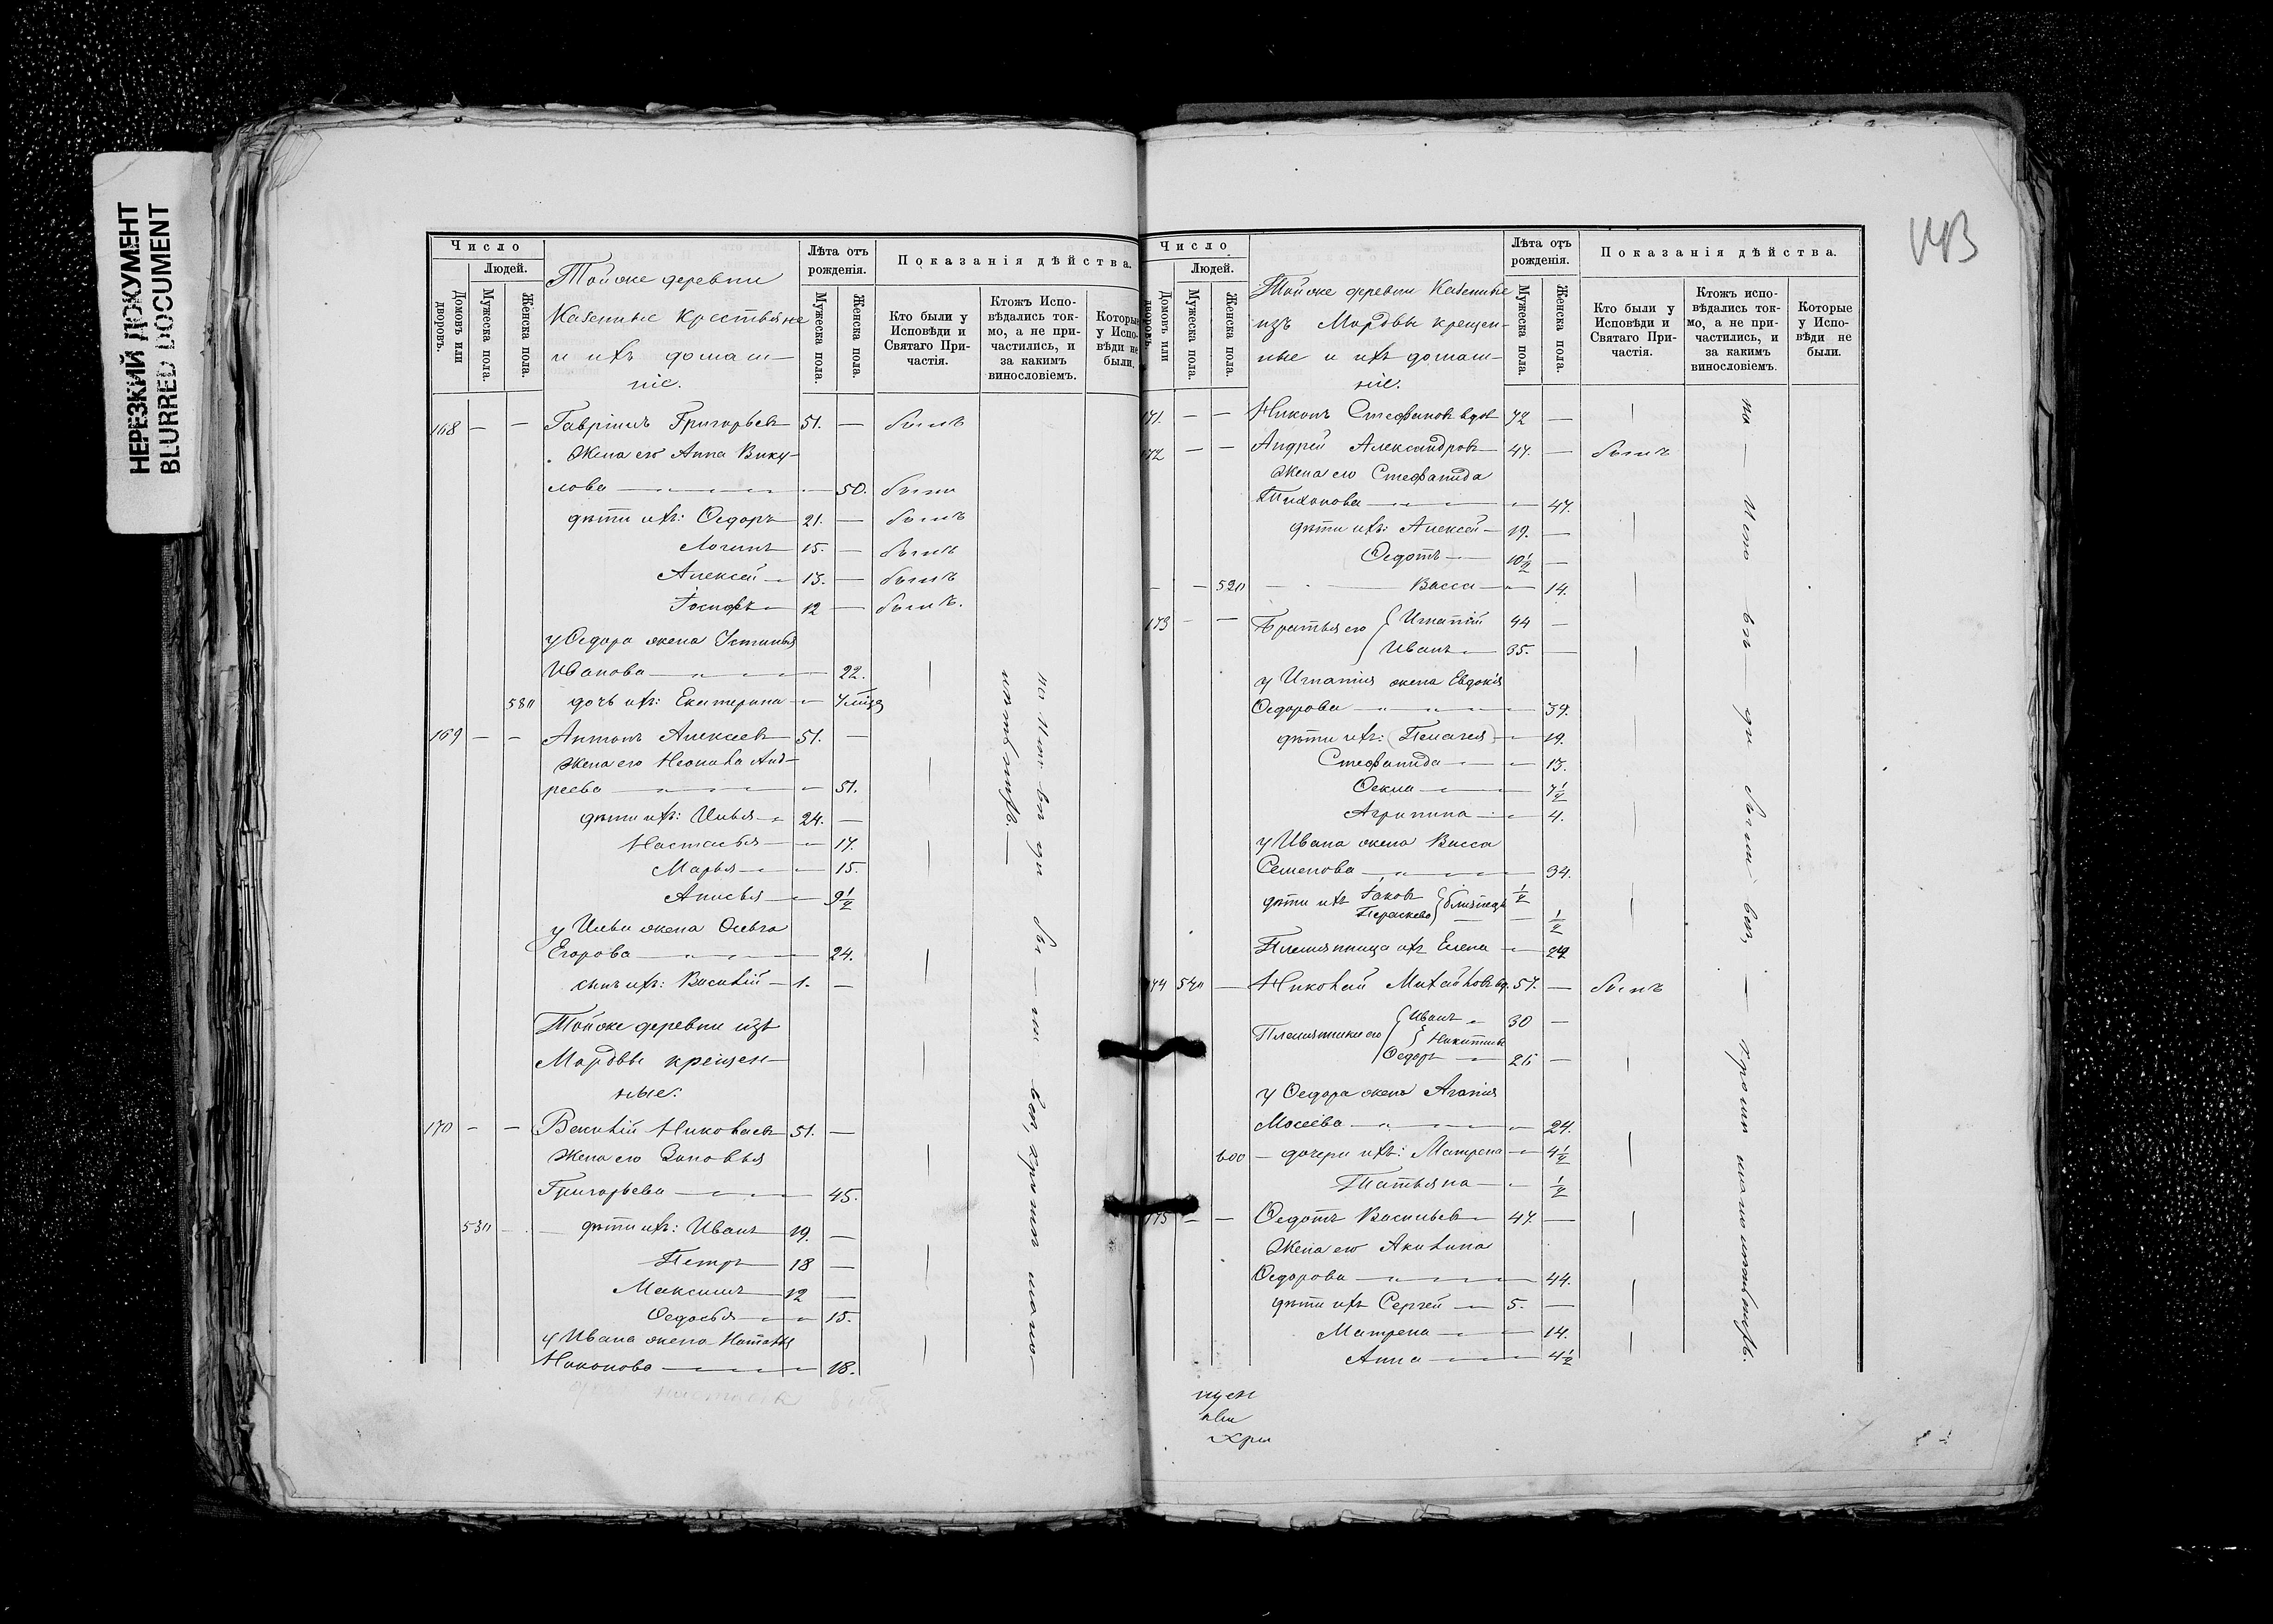 НЕРЕЗКИЙ ДОКУМЕНТ
BLURRED DOCUMENT
Число
Людей.
Домовъ или дворовъ.
Мужеска пола.
Женска пола.
Тойже деревни
Казенные крестьяне
и ихъ домаш-
ніе.
Лѣта отъ рожденія.
Мужеска пола.
Женска пола.
Показанія дѣйства.
Кто были у Исповѣди и Святаго Причастія.
Ктожъ Исповѣдались токмо, а не причастились, и за какимъ винословіемъ.
Которые у Исповѣди не были.
168 — — Гавріилъ Григорьевъ 51. — былъ
Жена его Анна Вику-
лова — 50. была
дѣти ихъ: Ѳедоръ 21. — былъ
Логинъ 15. — былъ
Алексей 13. — былъ
Іосифъ 12 — былъ.
у Ѳедора жена Устинья
Иванова — 22.
580 дочь ихъ: Екатерина
169 — — Антонъ Алексеевъ 51. —
Жена его Неонила Анд-
реева — 51.
дѣти ихъ: Илья 24. —
Настасья 17.
Марья 15.
Анисья 9½
у Ильи жена Ольга
Егорова — 24.
сынъ ихъ: Василій 1. —
Тойже деревни изъ
Мордвы крещен-
ные.
170 — — Василій Николаевъ 51. —
Жена его Зиновья
Григорьева — 45.
530 — дѣти ихъ: Иванъ 19. —
Петръ 18 —
Максимъ 12 —
Ѳедосья 15.
у Ивана жена Наталья
Никонова — 18.
143
Число
Людей.
Домовъ или дворовъ.
Мужеска пола.
Женска пола.
Тойже деревни Казенные
изъ Мордвы крещен-
ные и ихъ домаш-
ніе.
Лѣта отъ рожденія.
Мужеска пола.
Женска пола.
Показанія дѣйства.
Кто были у Исповѣди и Святаго Причастія.
Ктожъ исповѣдались токмо, а не причастились, и за какимъ винословіемъ.
Которые у Исповѣди не были.
171. — — Никонъ Стефановъ вдов 72 —
172 — — Андрей Александровъ 47. — былъ
Жена его Стефанида
Тихонова — 47.
дѣти ихъ: Алексей 19. —
Ѳедотъ 10½ —
Васса 14.
173 — — Братья его Игнатій 44 —
Иванъ 35. —
у Игнатія жена Евдокія
Ѳедорова — 39.
дѣти ихъ: Пелагея 19.
Стефанида 13.
Ѳекла 7½
Агрипина 4.
у Ивана жена Васса
Семенова — 34.
дѣти ихъ Іаковъ ½
Параскева близнецы ½
Племянница ихъ Елена
174 540 — Николай Михайловъ вд. 57. — былъ
Племянники его Иванъ 30 —
Никитины
Ѳедоръ —
у Ѳедора жена Агапія
Мосеева — 24.
600 — дочери ихъ: Матрена 4½
Татьяна ½
175 — — Ѳедотъ Васильевъ 47. —
Жена его Акилина
Ѳедорова — 44.
дѣти ихъ Сергей 5. —
Матрена 14.
Анна 4½